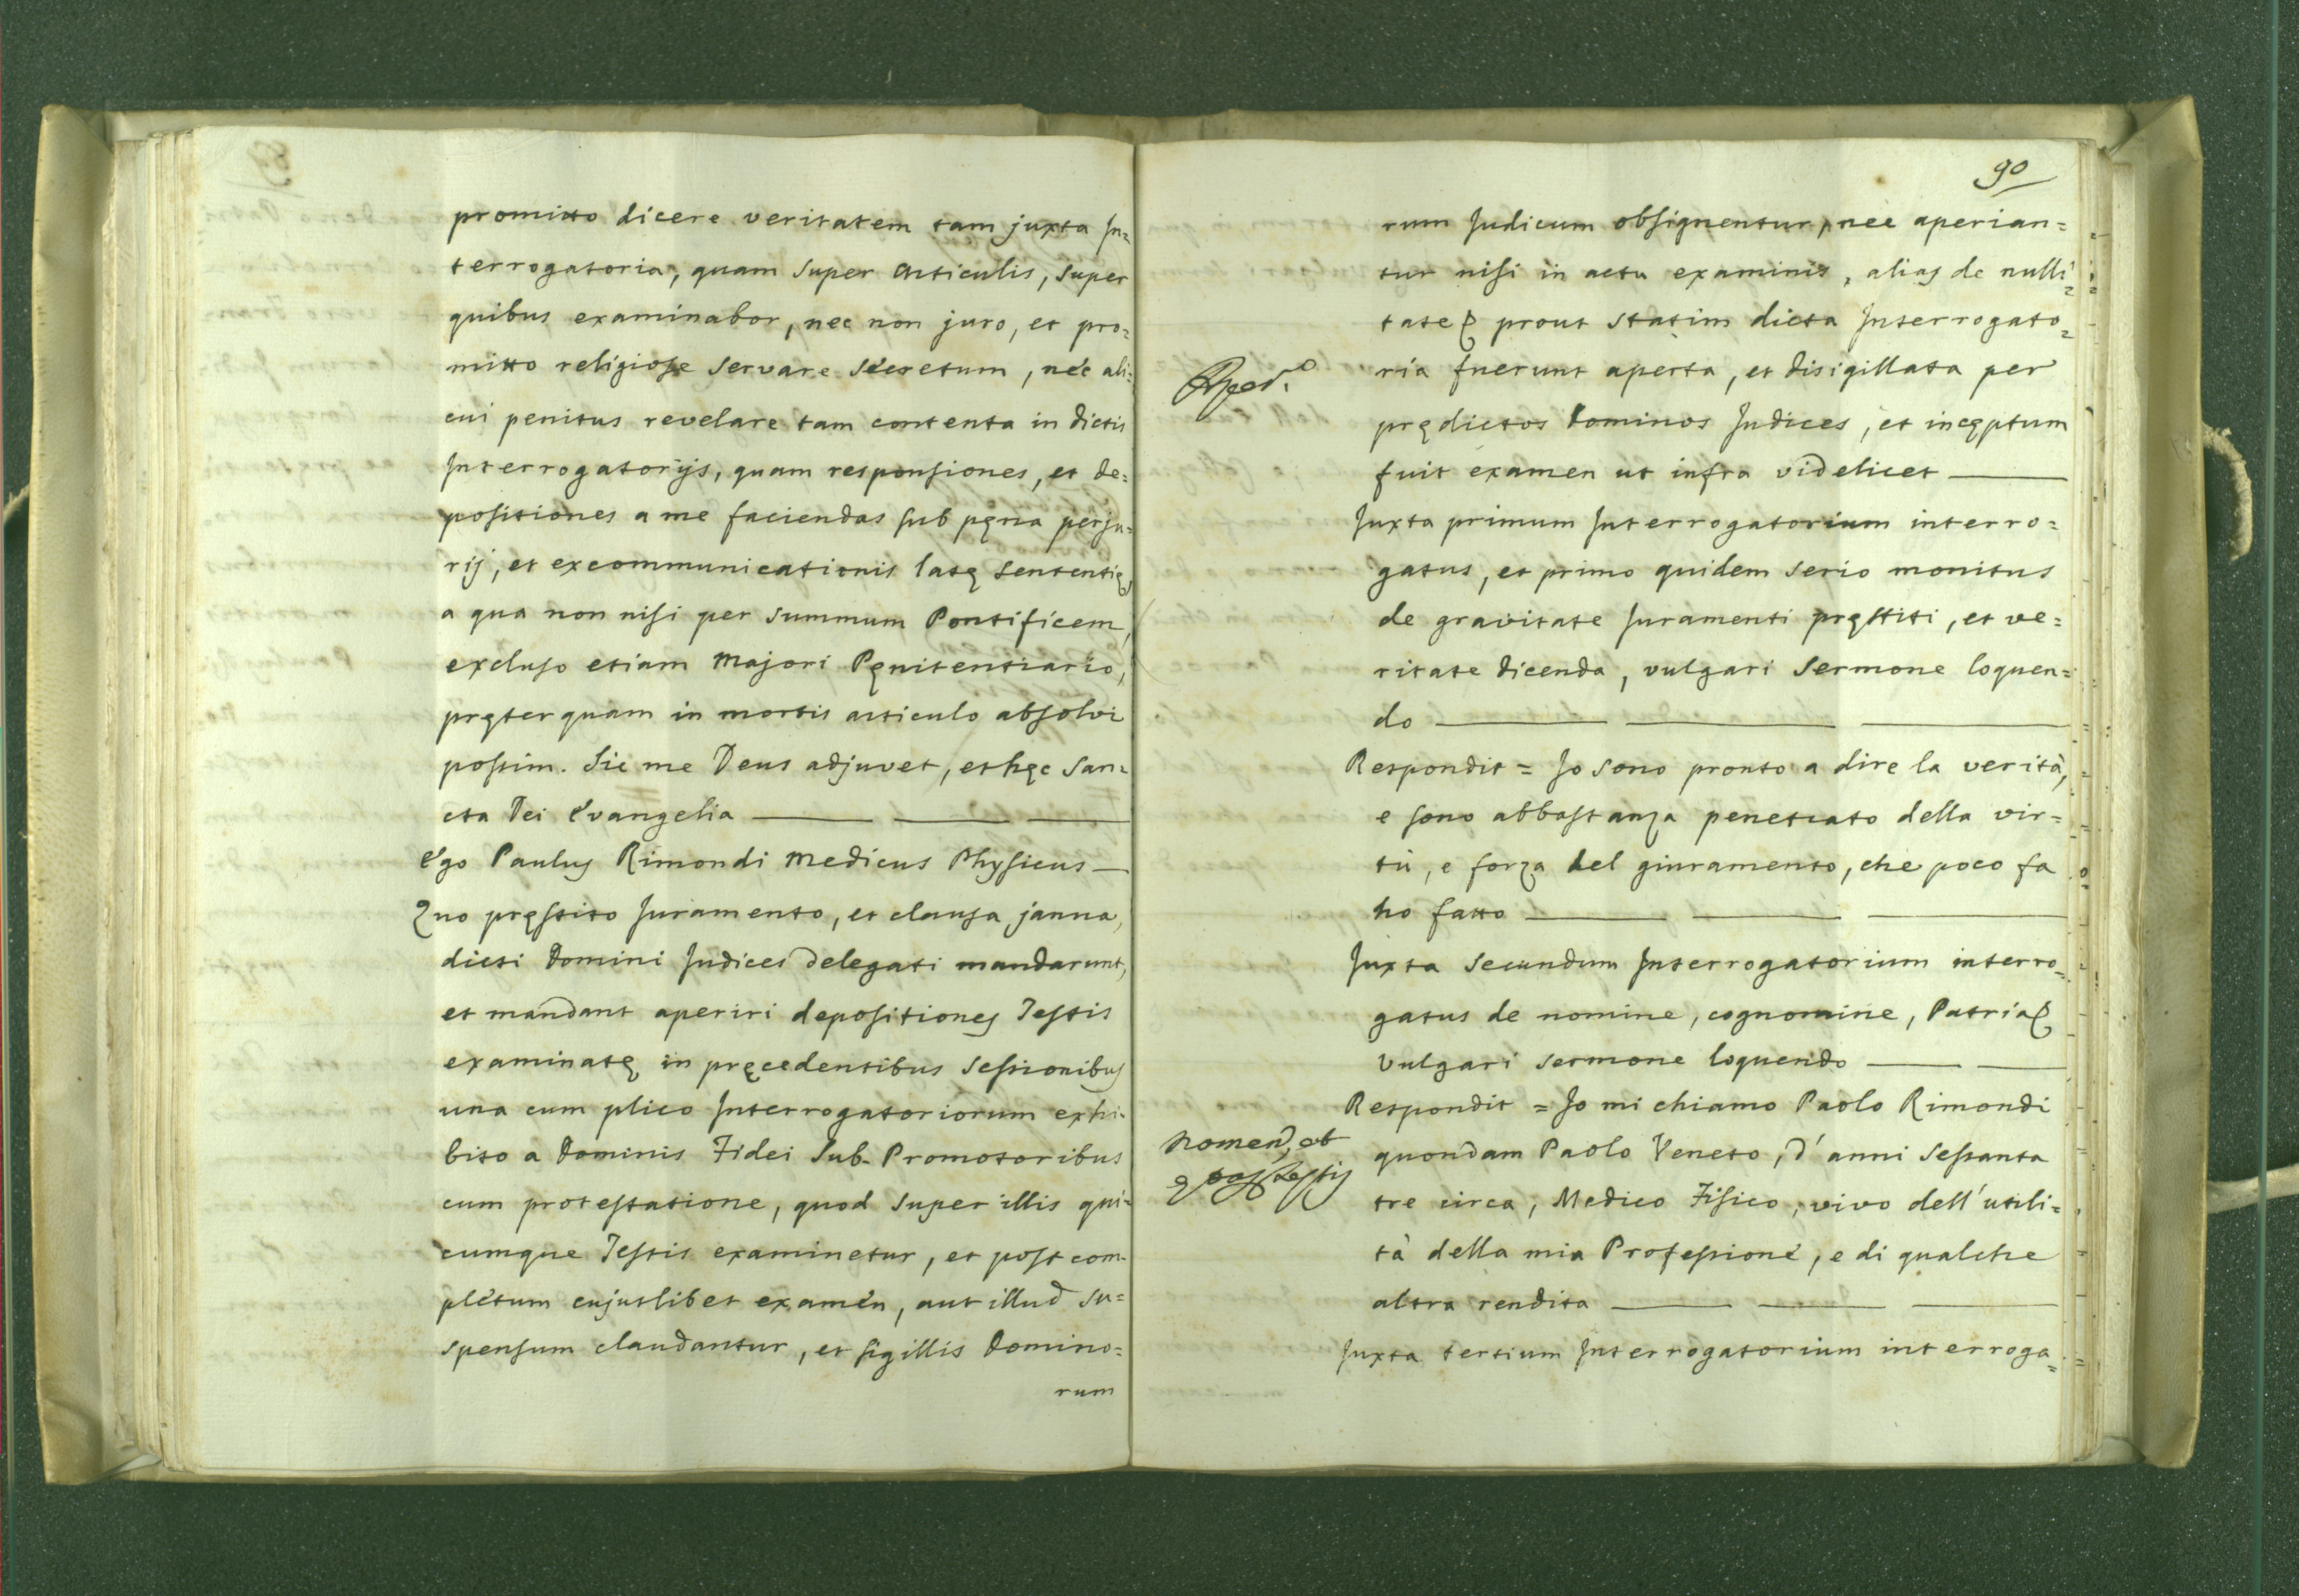 promitto dicere veritatem tam juxta In=
terrogatoria, quam super Articulis, super
quibus examinabor, nec non juro, et pro=
mitto religiose servare secretum, nec ali=
cui penitus revelare tam contenta in dictis
Interrogatorijs, quam responsiones, et de=
positiones a me faciendas sub pęna perju=
rij, et excommunicationis latę sententię,
a qua non nisi per summum Pontificem,
excluso etiam Majori Pęnitentiario,
pręterquam in mortis articulo absolvi
possim. Sic me Deus adjuvet, et hęc San=
cta Dei Evangelia
Ego Paulus Rimondi Medicus Physicus
Quo pręstito Juramento, et clausa janua,
dicti Domini Judices delegati mandarunt,
et mandant aperiri depositiones Testis
examinatę in pręcedentibus Sessionibus
una cum plico Interrogatoriorum exhi=
bito a Dominis Fidei Sub-Promotoribus
cum protestatione, quod super illis qui=
cumque Testis examinetur, et post com=
pletum cujuslibet examen, aut illud su=
spensum claudantur, et sigillis Domino=
rum
90
rum Judicum obsignentur, nec aperian=
tur nisi in actu examinis, alias de nulli=
tate prout statim dicta Interrogato=
ria fuerunt aperta, et disigillata per
prędictos Dominos Judices, et incęptum
fuit examen ut infra videlicet
Juxta primum Interrogatorium interro=
gatus, et primo quidem serio monitus
de gravitate Juramenti pręstiti, et ve=
ritate dicenda, vulgari Sermone loquen=
do
Respondit = Io sono pronto a dire la verità,
e sono abbastanza penetrato della vir=
tù, e forza del giuramento, che poco fa
ho fatto
Juxta secundum Interrogatorium interro=
gatus de nomine, cognomine, Patria
vulgari sermone loquendo
Respondit = Io mi chiamo Paolo Rimondi
Nomen, et
quondam Paolo Veneto, d'anni sessanta
Testis
tre circa, Medico Fisico, vivo dell'utili=
tà della mia Professione, e di qualche
altra rendita
Juxta tertium Interrogatorium interroga=